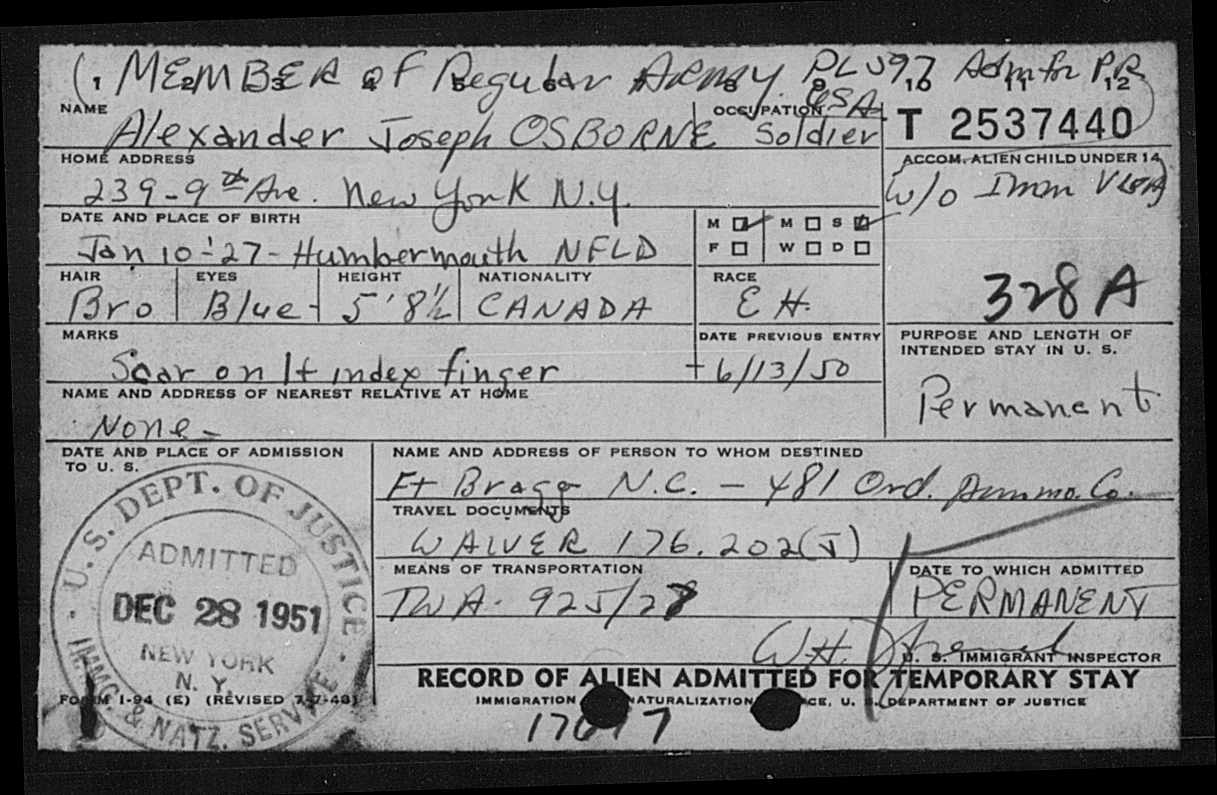 (MEMBER of Regular ARMY. PL 597 Adm for PR
1 2 3 4 5 6 7 8 9 10 11 12
NAME OCCUPATION USA
Alexander Joseph OSBORNE Soldier T 2537440
HOME ADDRESS ACCOM. ALIEN CHILD UNDER 14
239-9th Ave. New York N.Y. W/O Imm Visa
DATE AND PLACE OF BIRTH M ☑ M ☐ S ☑
Jan 10-'27-Humbermouth NFLD F ☐ W ☐ D ☐
HAIR EYES HEIGHT NATIONALITY RACE
Bro Blue- 5'8½ CANADA E H. 328 A
MARKS DATE PREVIOUS ENTRY PURPOSE AND LENGTH OF
INTENDED STAY IN U. S.
Scar on lt index finger +6/13/50
NAME AND ADDRESS OF NEAREST RELATIVE AT HOME Permanent
None-
DATE AND PLACE OF ADMISSION
TO U. S.
NAME AND ADDRESS OF PERSON TO WHOM DESTINED
Ft Bragg N.C. - 481 Ord. Ammo. Co.
TRAVEL DOCUMENTS
WAIVER 176.202(J)
MEANS OF TRANSPORTATION DATE TO WHICH ADMITTED
TWA. 925/28 PERMANENT
W.H.
U. S. IMMIGRANT INSPECTOR
U.S. DEPT. OF JUSTICE
ADMITTED
DEC 28 1951
NEW YORK
N. Y.
IMMG. & NATZ. SERVICE
FORM I-94 (E) (REVISED 7-7-48)
RECORD OF ALIEN ADMITTED FOR TEMPORARY STAY
IMMIGRATION NATURALIZATION CE, U. S. DEPARTMENT OF JUSTICE